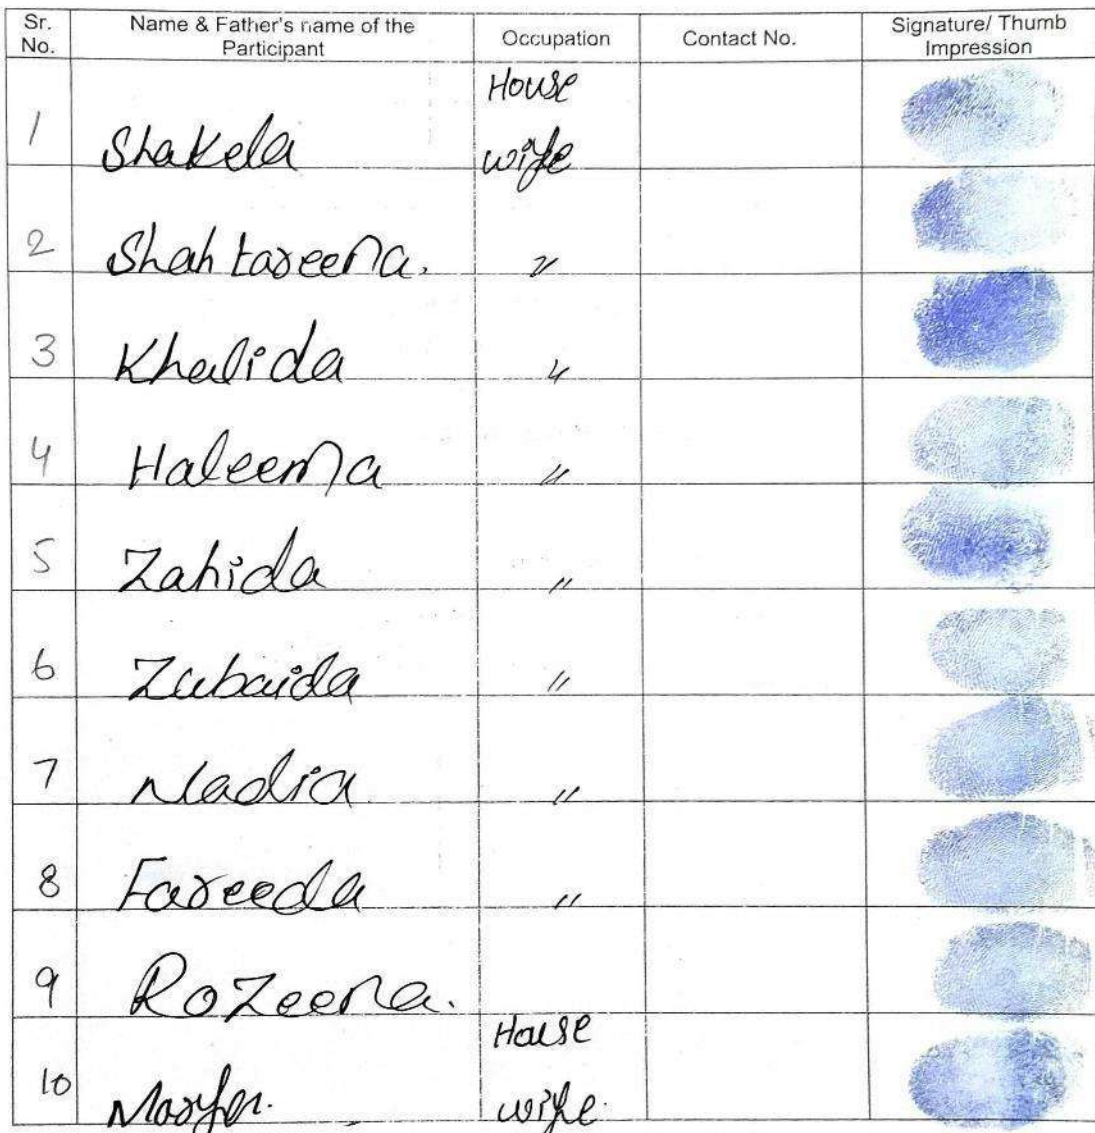 Sr. No. Name & Father's name of the Participant Occupation Contact No. Signature/ Thumb Impression
1 Shakela House wife
2 Shah tareena. "
3 Khalida "
4 Haleema "
5 Zahida "
6 Zubaida "
7 Nadia "
8 Fareeda "
9 Rozeena.
10 House wife.